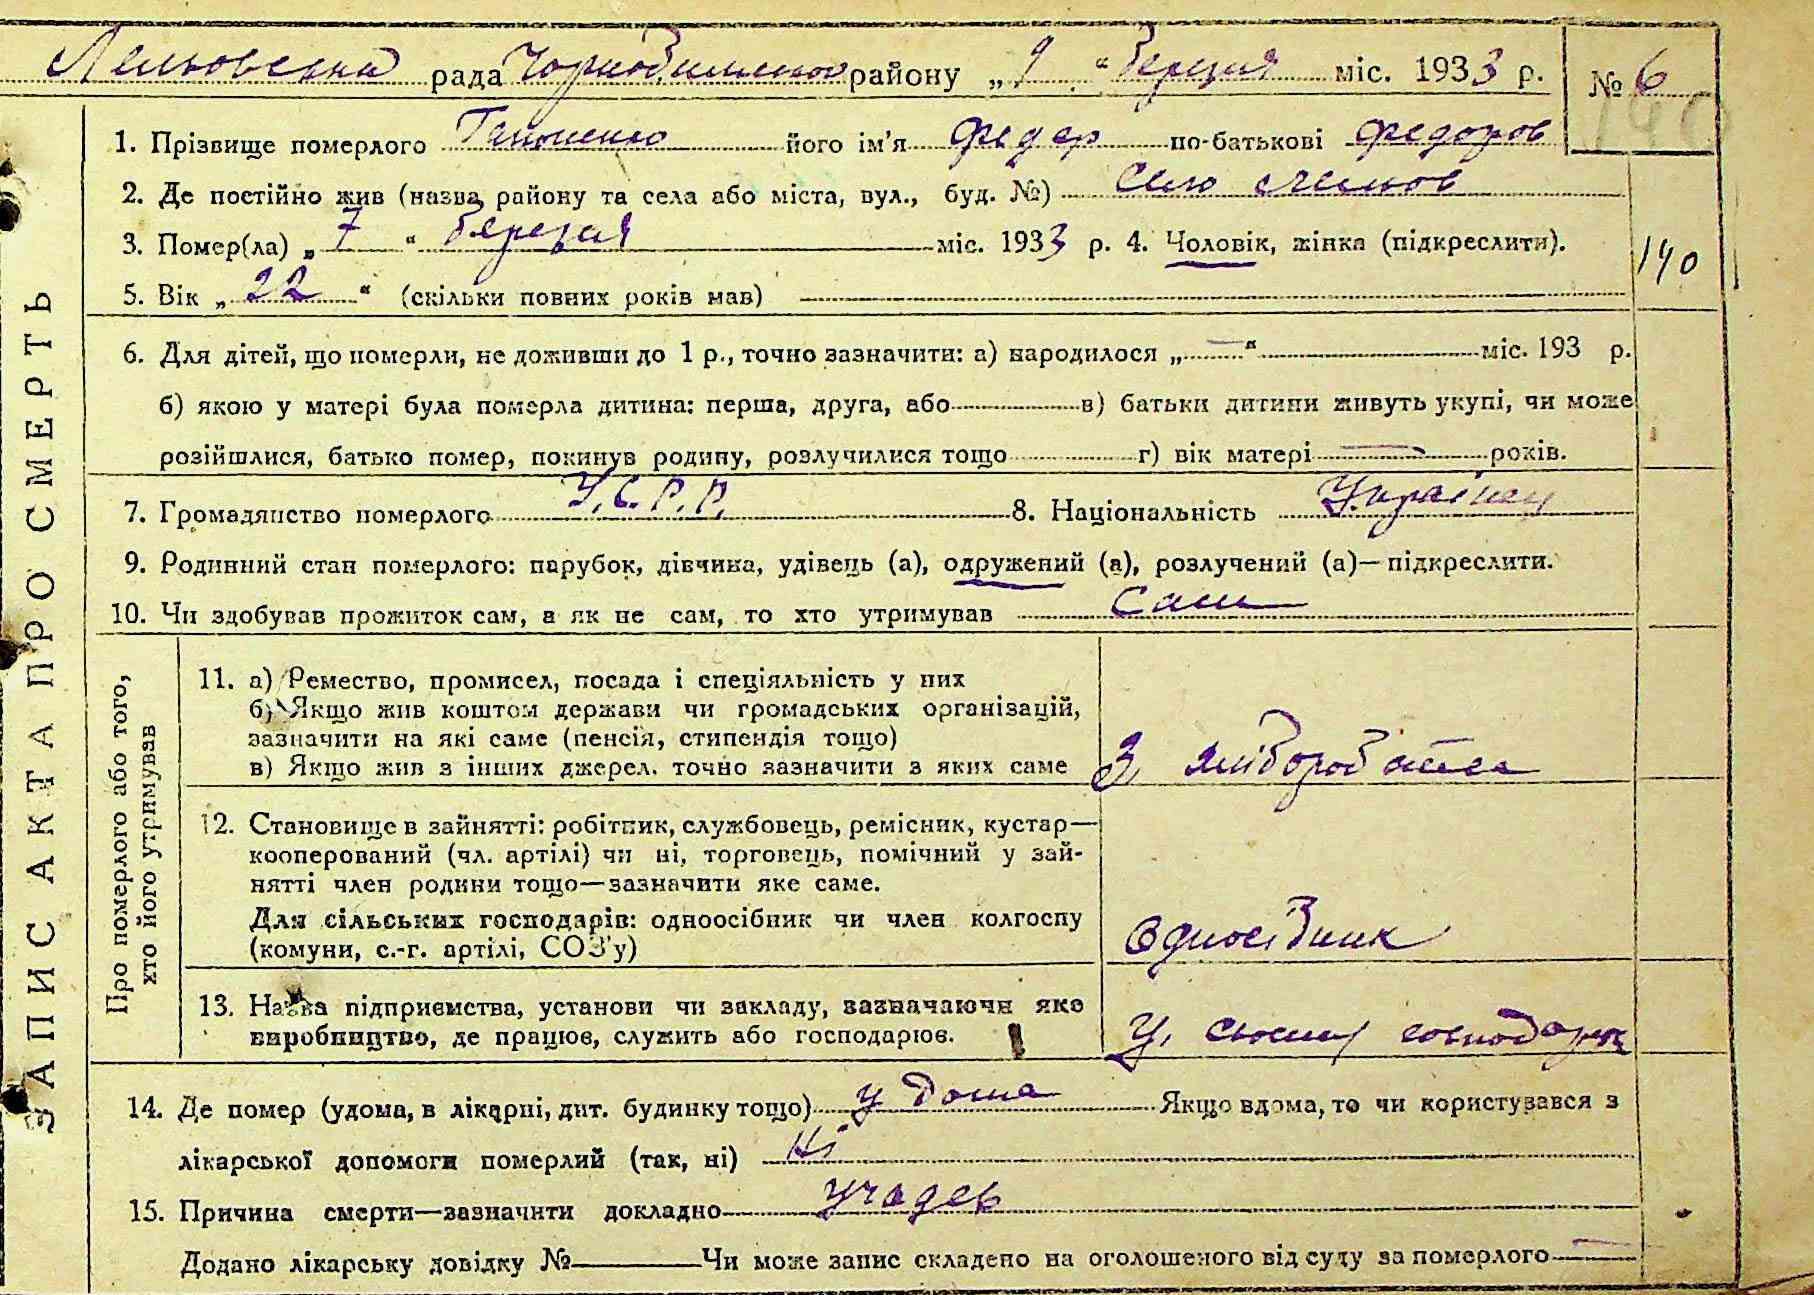 Лельовська рада Чорнобильського району „ 9 “ березня міс. 1933 р. № 6
190
1. Прізвище померлого його ім'я Федер по-батькові Федоров
2. Де постійно жив (назва району та села або міста, вул., буд. №) село Лельов
3. Помер(ла) „ 7 “ березня міс. 1933 р. 4. Чоловік, жінка (підкреслити).
190
5. Вік „ 22 “ (скільки повних років мав)
6. Для дітей, що померли, не доживши до 1 р., точно зазначити: а) народилося „ — “ міс. 193 р.
б) якою у матері була померла дитина: перша, друга, або в) батьки дитини живуть укупі, чи може
розійшлися, батько помер, покинув родину, розлучилися тощо г) вік матері — років.
7. Громадянство померлого У.С.Р.Р. 8. Національність Українец
9. Родинний стан померлого: парубок, дівчина, удівець (а), одружений (а), розлучений (а)—підкреслити.
10. Чи здобував прожиток сам, а як не сам, то хто утримував Сам
ЗАПИС АКТА ПРО СМЕРТЬ
Про померлого або того,
хто його утримував
11. а) Ремество, промисел, посада і спеціяльність у них
б) Якщо жив коштом держави чи громадських організацій,
зазначити на які саме (пенсія, стипендія тощо)
в) Якщо жив з інших джерел, точно зазначити з яких саме З хліборобства
12. Становище в зайнятті: робітник, службовець, ремісник, кустар—
кооперований (чл. артілі) чи ні, торговець, помічний у зай-
нятті член родини тощо—зазначити яке саме.
Для сільських господарів: одноосібник чи член колгоспу
(комуни, с.-г. артілі, СОЗ'у) Односібник
13. Назва підприємства, установи чи закладу, зазначаючи яке
виробництво, де працює, служить або господарює. У своему
14. Де помер (удома, в лікарні, дит. будинку тощо) у дома Якщо вдома, то чи користувався з
лікарської допомоги померлий (так, ні) Ні
15. Причина смерти—зазначити докладно
Додано лікарську довідку № Чи може запис складено на оголошеного від суду за померлого —